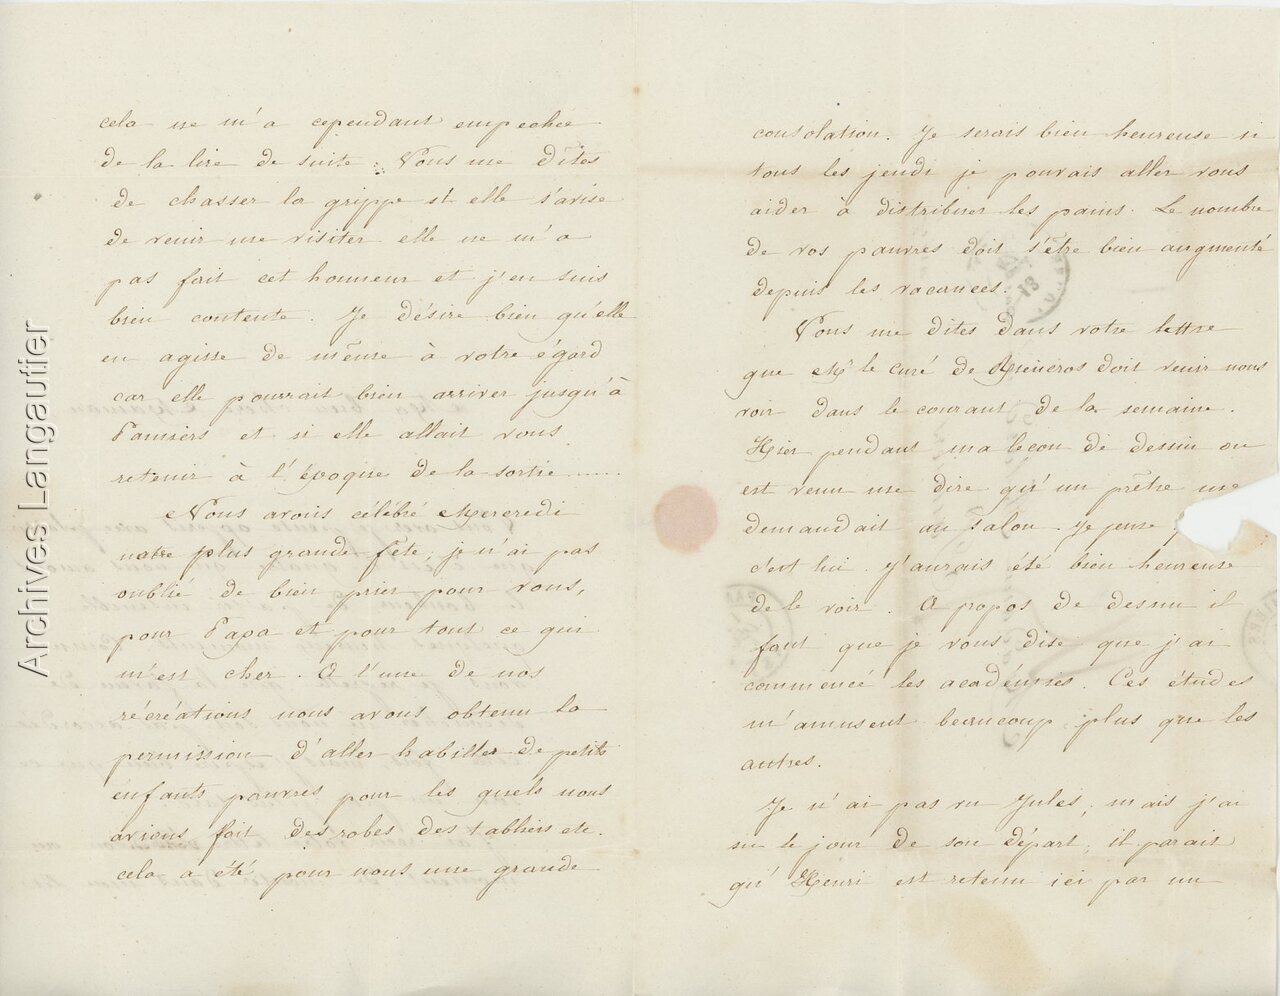 cela ne m'a cependant empechée
de la lire de suite. Vous me dîtes
de chasser la grippe si elle s'avise
de venir me visiter elle ne m'a
pas fait cet honneur et j'en suis
bien contente. Je désire bien qu'elle
en agisse de même à votre égard
car elle pourrait bien arriver jusqu'à
Pamiers et si elle allait vous
retenir à l'époque de la sortie .....
Nous avons célébré Mercredi
notre plus grande fête, je n'ai pas
oublié de bien prier pour vous,
pour Papa et pour tout ce qui
m'est cher. A l'une de nos
récréations nous avons obtenu la
permission d'aller habiller de petits
enfants pauvres pour les quels nous
avions fait des robes des tabliers etc.
cela a été pour nous une grande
consolation. Je serais bien heureuse si
tous les jeudi je pouvais aller vous
aider à distribuer les pains. Le nombre
de vos pauvres doit s'être bien augmenté
depuis les vacances.
Vous me dites dans votre lettre
que Mr le curé de doit venir nous
voir dans le courant de la semaine.
Hier pendant ma leçon de dessin on
est venu me dire qu'un prêtre me
demandait au salon. Je pense
c'est lui. J'aurais été bien heureuse
de le voir. A propos de dessin il
faut que je vous dise que j'ai
commencé les académies. Ces études
m'amusent beaucoup plus que les
autres.
Je n'ai pas vu Jules, mais j'ai
su le jour de son départ, il parait
qu'Henri est retenu ici par un
Archives Langautier